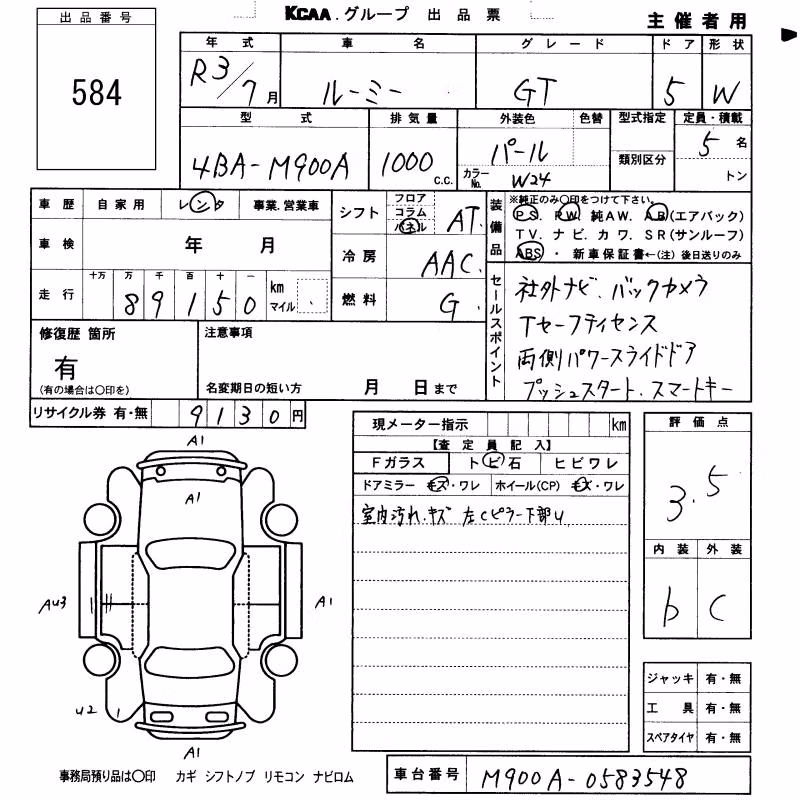 出品番号
584
KCAA.グループ 出品票
主催者用
年式 車名 グレード ドア 形状
R3/7月 ルーミー GT 5 W
型式 排気量 外装色 色替 型式指定 定員・積載
4BA-M900A 1000 C.C. パール 5名
カラーNo. W24 類別区分 トン
車歴 自家用 レンタ 事業.営業車
車検 年 月
走行 十万 万 千 百 十 一 km マイル
8 9 1 5 0
シフト フロア コラム パネル AT
冷房 AAC
燃料 G
装備品
※純正のみ○印をつけて下さい。
PS. PW. 純AW. AB(エアバック)
TV. ナビ. カワ. SR(サンルーフ)
ABS・新車保証書←(注)後日送りのみ
セールスポイント
社外ナビ. バックカメラ
Tセーフティセンス
両側パワースライドドア
プッシュスタート. スマートキー
修復歴 箇所
有
(有の場合は○印を)
注意事項
名変期日の短い方 月 日まで
リサイクル券 有・無 9130円
現メーター指示 km
【査定員記入】
Fガラス トビ石 ヒビワレ
ドアミラー キズ・ワレ ホイール(CP) キズ・ワレ
室内汚れ.キズ 左Cピラー下部U
評価点
3.5
内装 外装
b C
ジャッキ 有・無
工具 有・無
スペアタイヤ 有・無
A1
A1
AU3
A1
U2
A1
事務局預り品は○印 カギ シフトノブ リモコン ナビロム
車台番号 M900A-0583548